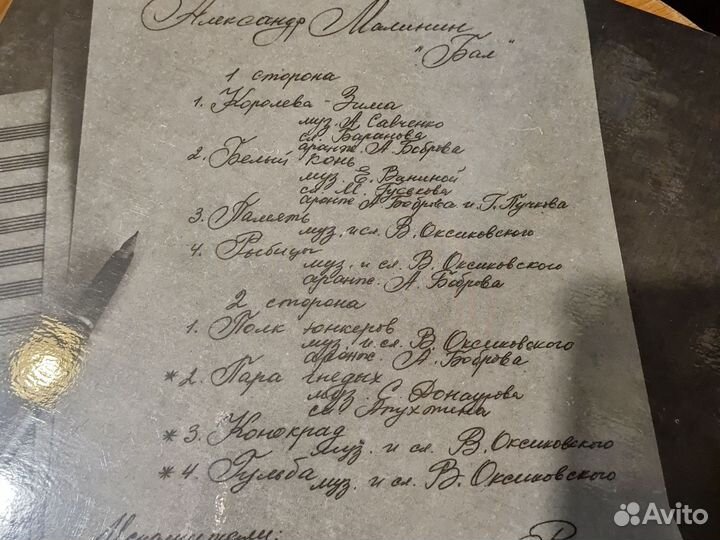 Александр Малинин
"Бал"
1 сторона
1. Королева - Зима
муз. А. Савченко
сл. Баранова
аранж. А. Боброва
2. Белый конь
муз. Е. Ваниной
сл. М. Гуськова
аранж. А. Боброва и Г. Пучкова
3. Память
муз. и сл. В. Оксиковского
4. Рыбицы
муз. и сл. В. Оксиковского
аранж. А. Боброва
2 сторона
1. Полк юнкеров
муз. и сл. В. Оксиковского
аранж. А. Боброва
* 2. Пара гнедых
муз. С. Донаурова
сл. Апухтина
* 3. Конокрад
муз. и сл. В. Оксиковского
* 4. Гульба
муз. и сл. В. Оксиковского
Исполнители:
Avito